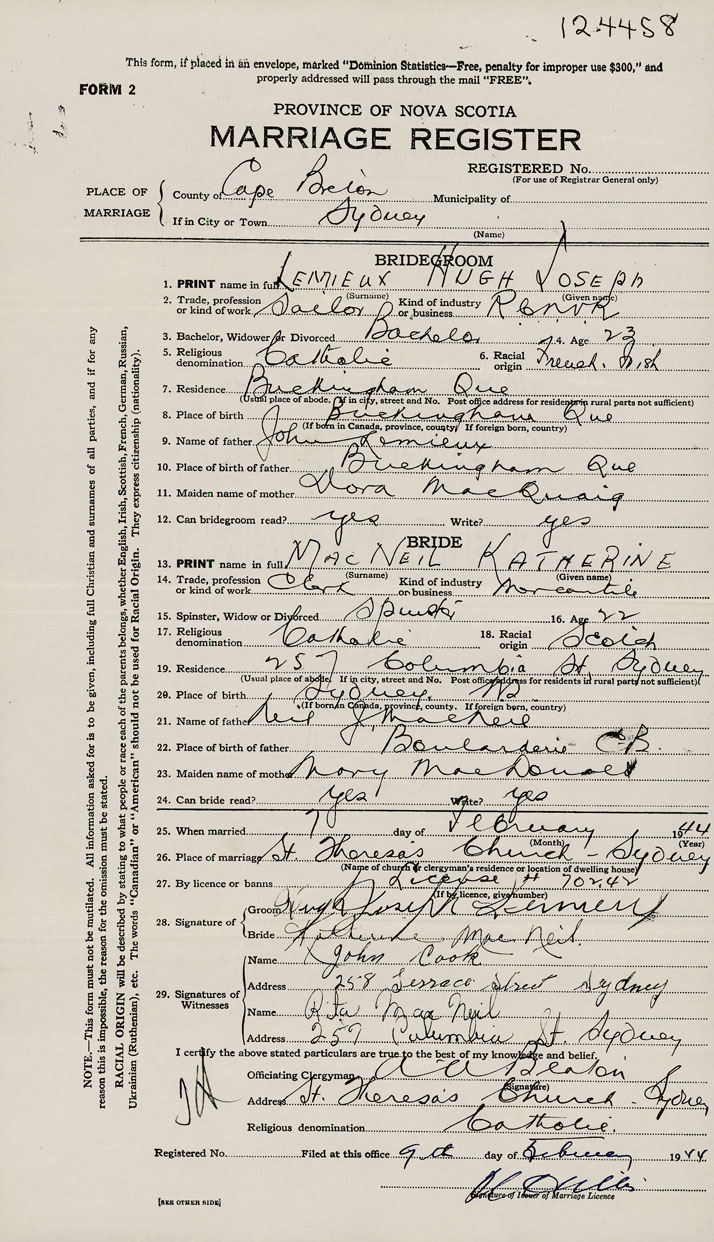 124458
This form, if placed in an envelope, marked "Dominion Statistics—Free, penalty for improper use $300," and
properly addressed will pass through the mail "FREE".
FORM 2
PROVINCE OF NOVA SCOTIA
MARRIAGE REGISTER
REGISTERED No.
(For use of Registrar General only)
PLACE OF MARRIAGE
County of Cape Breton Municipality of
If in City or Town Sydney
(Name)
BRIDEGROOM
1. PRINT name in full LEMIEUX HUGH JOSEPH
(Surname) (Given name)
2. Trade, profession or kind of work Sailor Kind of industry or business RCNVR
3. Bachelor, Widower or Divorced Bachelor 4. Age 23
5. Religious denomination Catholic 6. Racial origin French. Irish
7. Residence Buckingham Que
(Usual place of abode. If in city, street and No. Post office address for residents in rural parts not sufficient)
8. Place of birth Buckingham Que
(If born in Canada, province, county. If foreign born, country)
9. Name of father John Lemieux
10. Place of birth of father Buckingham Que
11. Maiden name of mother Dora MacQuaig
12. Can bridegroom read? yes Write? yes
BRIDE
13. PRINT name in full MACNEIL KATHERINE
(Surname) (Given name)
14. Trade, profession or kind of work Clerk Kind of industry or business Mercantile
15. Spinster, Widow or Divorced Spinster 16. Age 22
17. Religious denomination Catholic 18. Racial origin Scotch
19. Residence 257 Columbia St. Sydney
(Usual place of abode. If in city, street and No. Post office address for residents in rural parts not sufficient)
20. Place of birth Sydney
(If born in Canada, province, county. If foreign born, country)
21. Name of father Neil J. MacNeil
22. Place of birth of father Boularderie C.B.
23. Maiden name of mother Mary MacDonald
24. Can bride read? yes Write? yes
25. When married 7 day of February 1944
(Month) (Year)
26. Place of marriage St. Theresa's Church - Sydney
(Name of church or clergyman's residence or location of dwelling house)
27. By licence or banns License # 70242
(If by licence, give number)
28. Signature of
Groom Hugh Joseph Lemieux
Bride Katherine MacNeil.
29. Signatures of Witnesses
Name John Cook
Address 258 Terrace Street Sydney
Name Rita MacNeil
Address 257 Columbia St. Sydney
I certify the above stated particulars are true to the best of my knowledge and belief.
Officiating Clergyman A A Beaton
(Signature)
Address St. Theresa's Church - Sydney
Religious denomination Catholic.
Registered No. Filed at this office 9th day of February 1944
Signature of Issuer of Marriage Licence
[SEE OTHER SIDE]
NOTE.—This form must not be mutilated. All information asked for is to be given, including full Christian and surnames of all parties, and if for any
reason this is impossible, the reason for the omission must be stated.
RACIAL ORIGIN will be described by stating to what people or race each of the parents belongs, whether English, Irish, Scottish, French, German, Russian,
Ukrainian (Ruthenian), etc. The words "Canadian" or "American" should not be used for Racial Origin. They express citizenship (nationality).